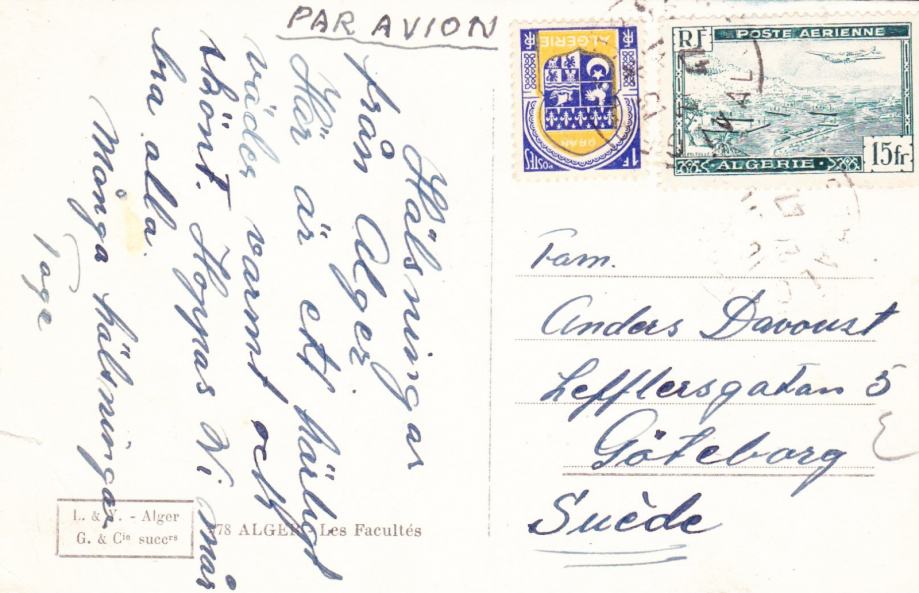 PAR AVION
Hälsningar
från Alger.
Här är ett härligt
väder varmt och
skönt. Hoppas Ni mår
bra alla.
Många hälsningar
Tage
ALGERIE
ORAN
POSTES
1F
RF
POSTE AERIENNE
ALGERIE
15fr
Fam.
Anders Davoust
Lefflersgatan 5
Göteborg
Suède
L. & Y. - Alger
G. & Cie succrs
78 ALGER - Les Facultés